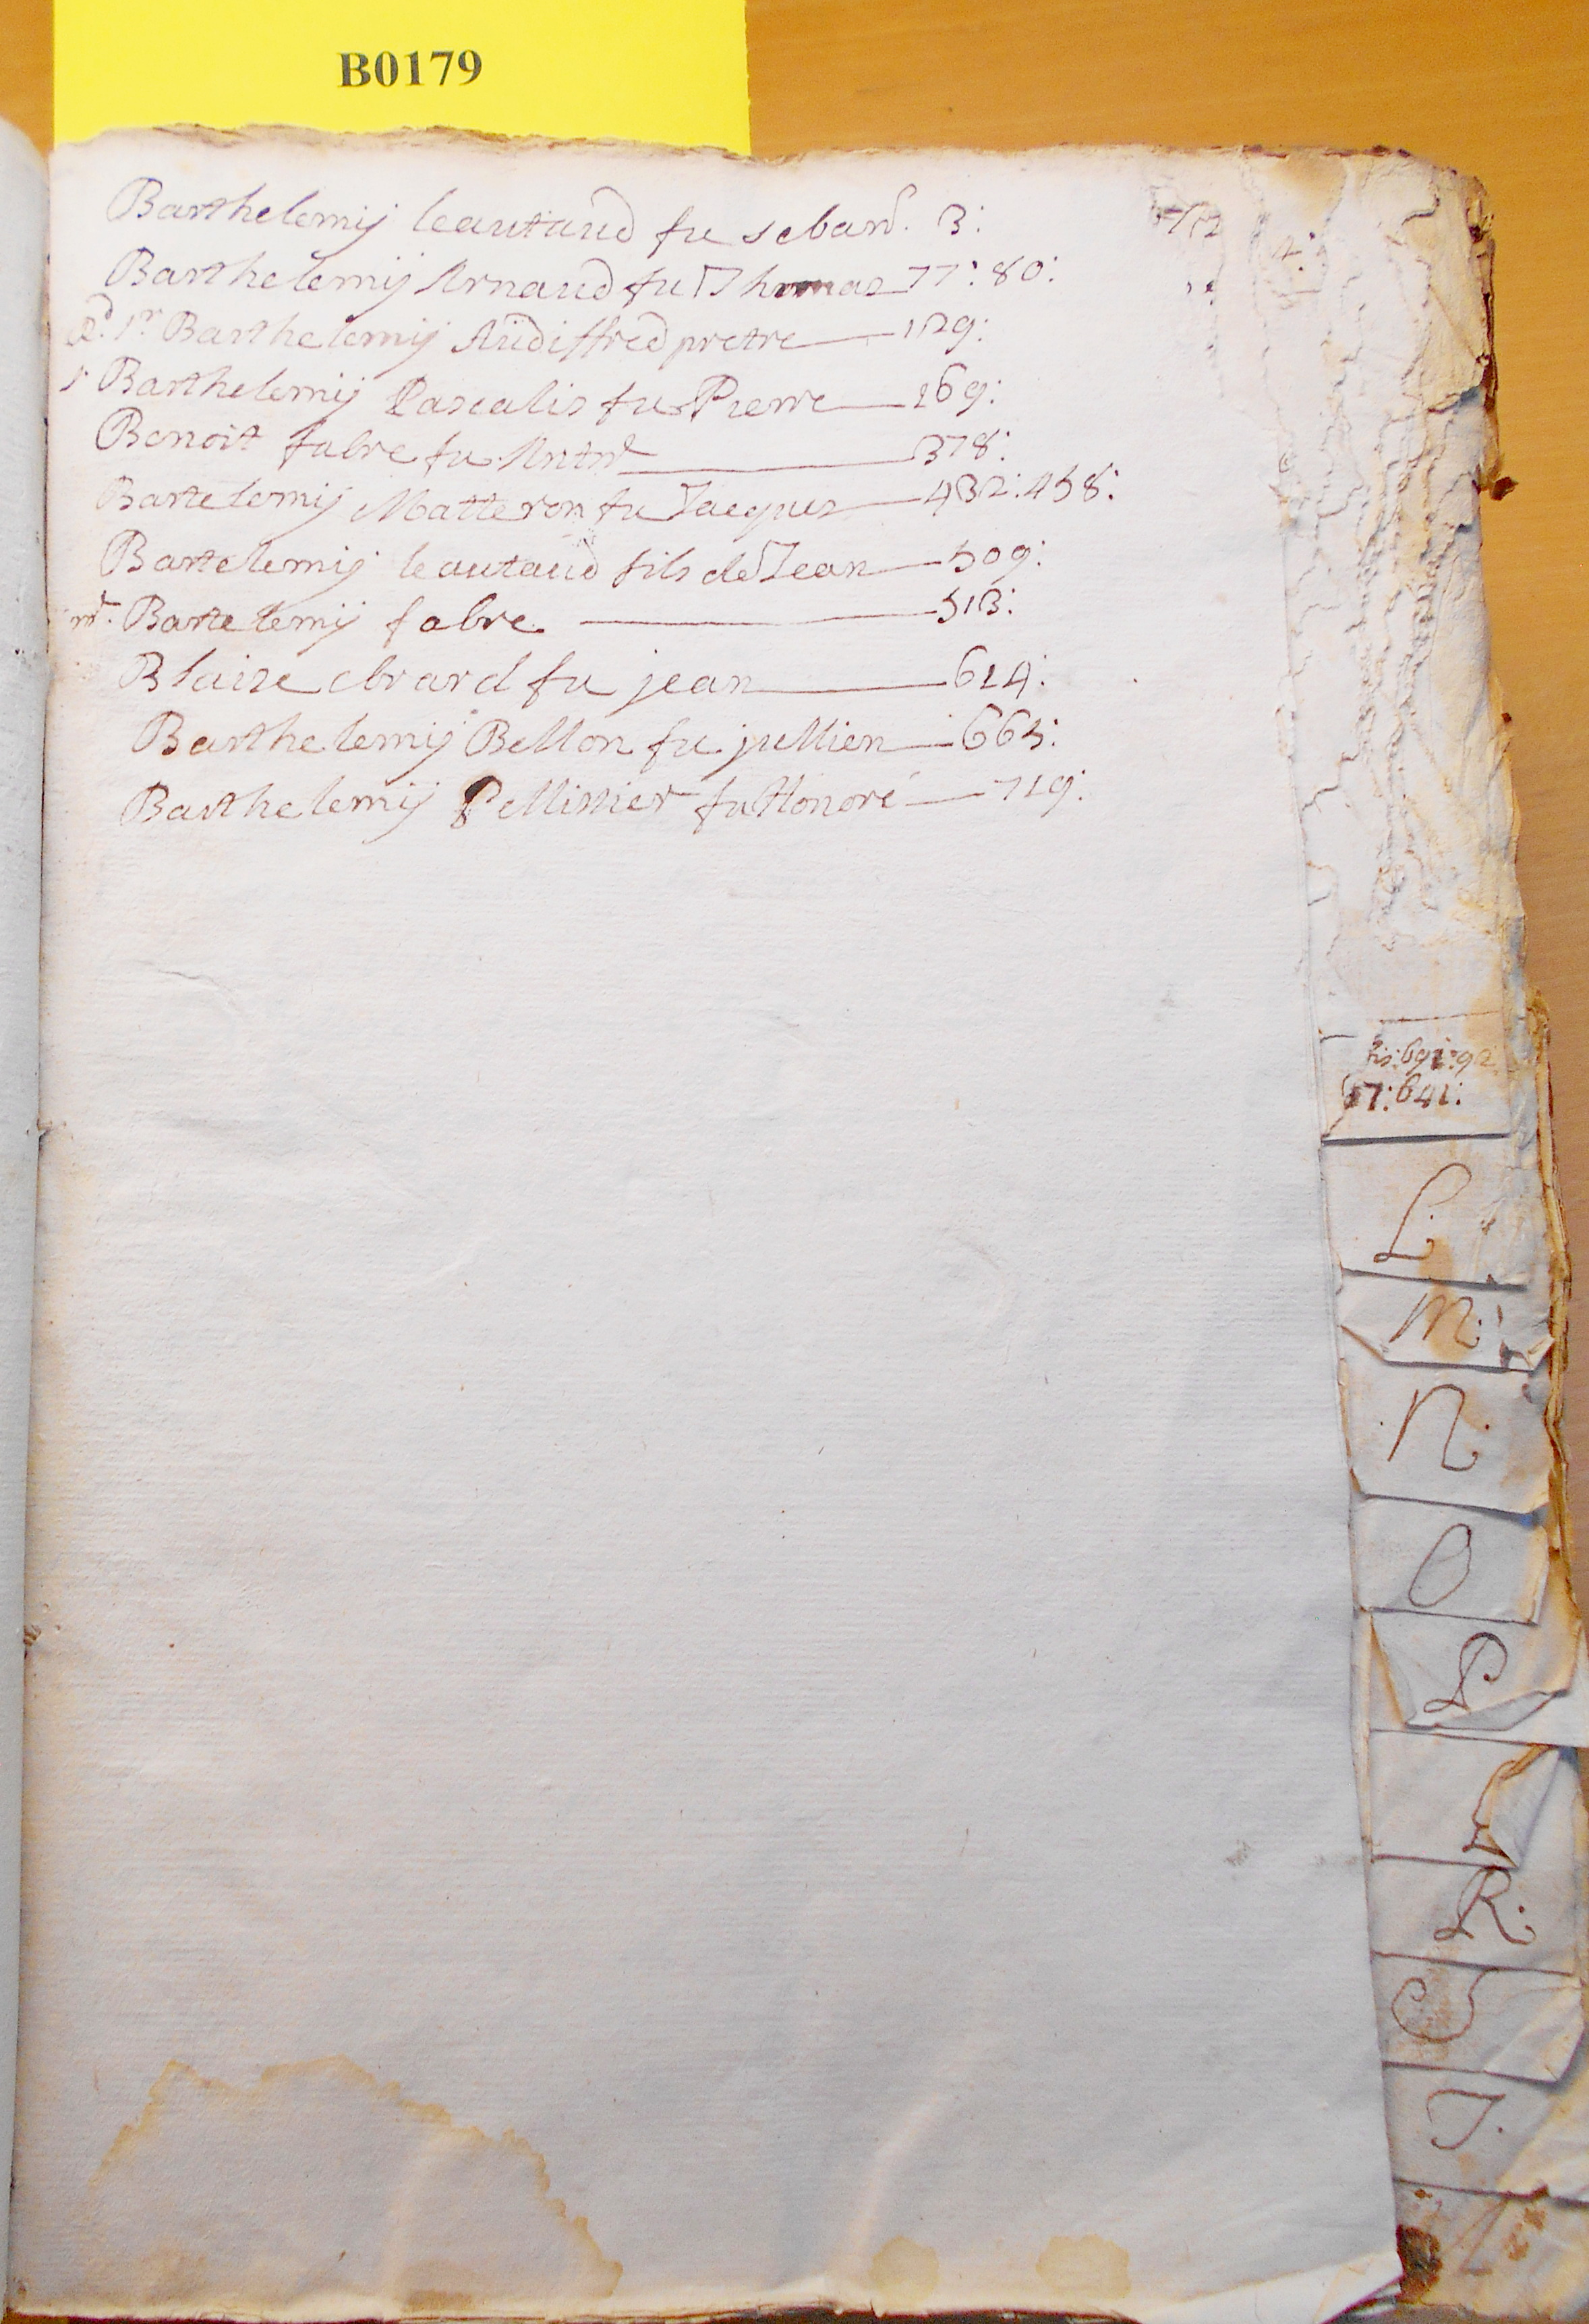 B0179
Barthelemij leautaud fu seban. 3:
Barthelemij Arnaud fu Thomas 77: 80:
Barthelemij Audiffred pretre 129:
Barthelemij Pascalis fu Pierre 169:
Benoit fabre fu Antne 378:
Bartelemij Matteron fu Jacques 432: 458:
Bartelemij leautaud fils de Jean 509:
mr. Bartelemij fabre 513:
Blaise ebrard fu jean 614:
Barthelemij Bellon fu jullien 665:
Barthelemij Pellissier fu Honoré 719:
691: 92
57: 641:
L.
M.
N.
O
P
R.
S
T.